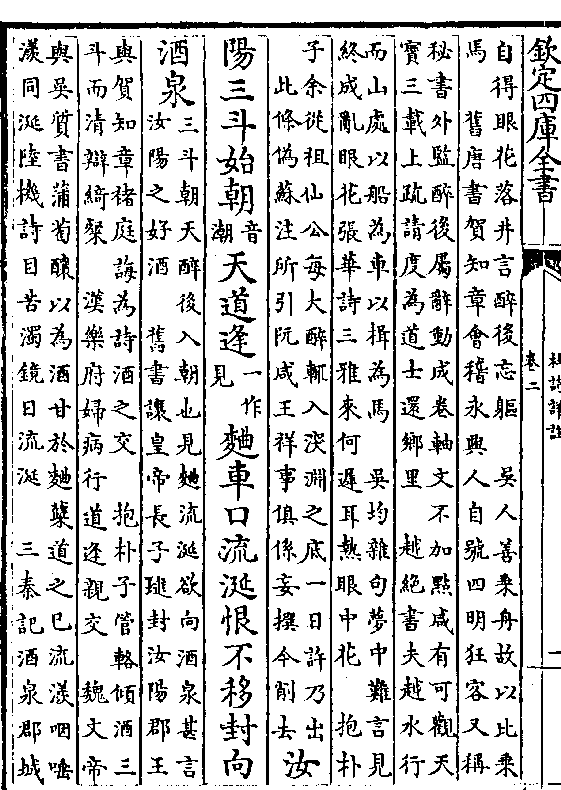 欽定四庫全書
杜詩詳註
卷二
自得眼花落井言醉後忘軀 吳人善乘舟故以比乘
馬 舊唐書賀知章會稽永興人自號四明狂客又稱
秘書外監醉後屬辭動成卷軸文不加點咸有可觀天
寶三載上疏請度為道士還鄉里 越絕書夫越水行
而山處以船為車以楫為馬 吳均雜句夢中難言見
終成亂眼花張華詩三雅來何遲耳熱眼中花 抱朴
子余從祖仙公每大醉輒入深淵之底一日許乃出
此條偽蘇注所引阮咸王祥事俱係妄撰今削去
汝
陽三斗始朝音潮天道逢一作見麯車口流涎恨不移封向
酒泉
三斗朝天醉後入朝也見麯流涎欲向酒泉甚言
汝陽之好酒 舊書讓皇帝長子璡封汝陽郡王
與賀知章褚庭誨為詩酒之交 抱朴子管輅傾酒三
斗而清辯綺粲 漢樂府婦病行道逢親交 魏文帝
與吳質書蒲萄釀以為酒甘於麯糵道之已流漾咽嗌
漾同涎陸機詩目苦濁鏡日流涎 三秦記酒泉郡城